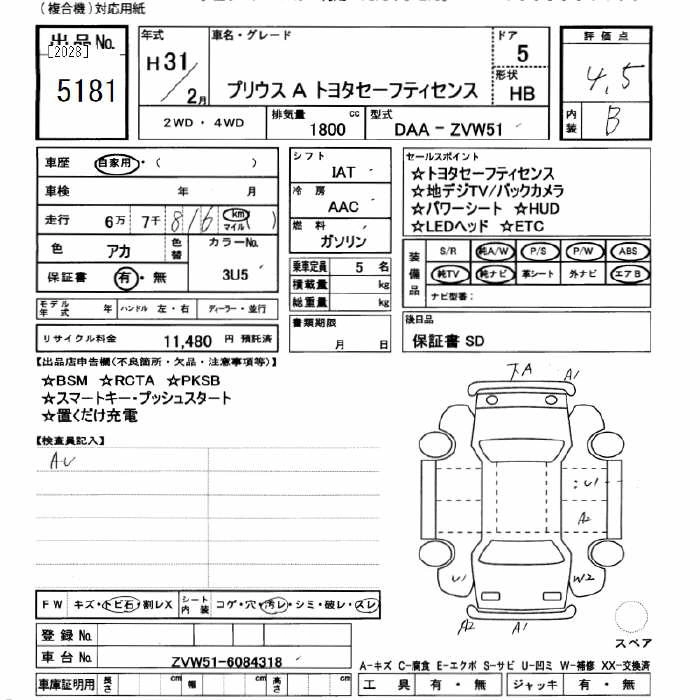 （複合機）対応用紙
出品No.
[2028]
5181
年式
H31/2月
車名・グレード
プリウス A トヨタセーフティセンス
ドア
5
形状
HB
2WD ・ 4WD
排気量
1800 cc
型式
DAA - ZVW51
評価点
4.5
内装
B
車歴 自家用・（ ）
車検 年 月
走行 6万 7千 816 km マイル
色 アカ
色替
カラーNo.
3U5
保証書 有・無
モデル年式 年 ハンドル 左・右 ディーラー・並行
リサイクル料金 11,480 円 預託済
シフト
IAT
冷房
AAC
燃料
ガソリン
乗車定員 5 名
積載量 kg
総重量 kg
書類期限
月 日
セールスポイント
☆トヨタセーフティセンス
☆地デジTV/バックカメラ
☆パワーシート ☆HUD
☆LEDヘッド ☆ETC
装備品
S/R 純A/W P/S P/W ABS
純TV 純ナビ 革シート 外ナビ エアB
ナビ型番：
後日品
保証書 SD
【出品店申告欄（不良箇所・欠品・注意事項等）】
☆BSM ☆RCTA ☆PKSB
☆スマートキー・プッシュスタート
☆置くだけ充電
【検査員記入】
AU
下A A1
U1
A2
U1 W2
A2 A1
スペア
FW キズ・トビ石・割レX
シート内装 コゲ・穴・汚レ・シミ・破レ・スレ
登録No.
車台No. ZVW51-6084318
車庫証明用 長さ cm 幅 cm 高さ cm
A-キズ C-腐食 E-エクボ S-サビ U-凹ミ W-補修 XX-交換済
工具 有・無 ジャッキ 有・無